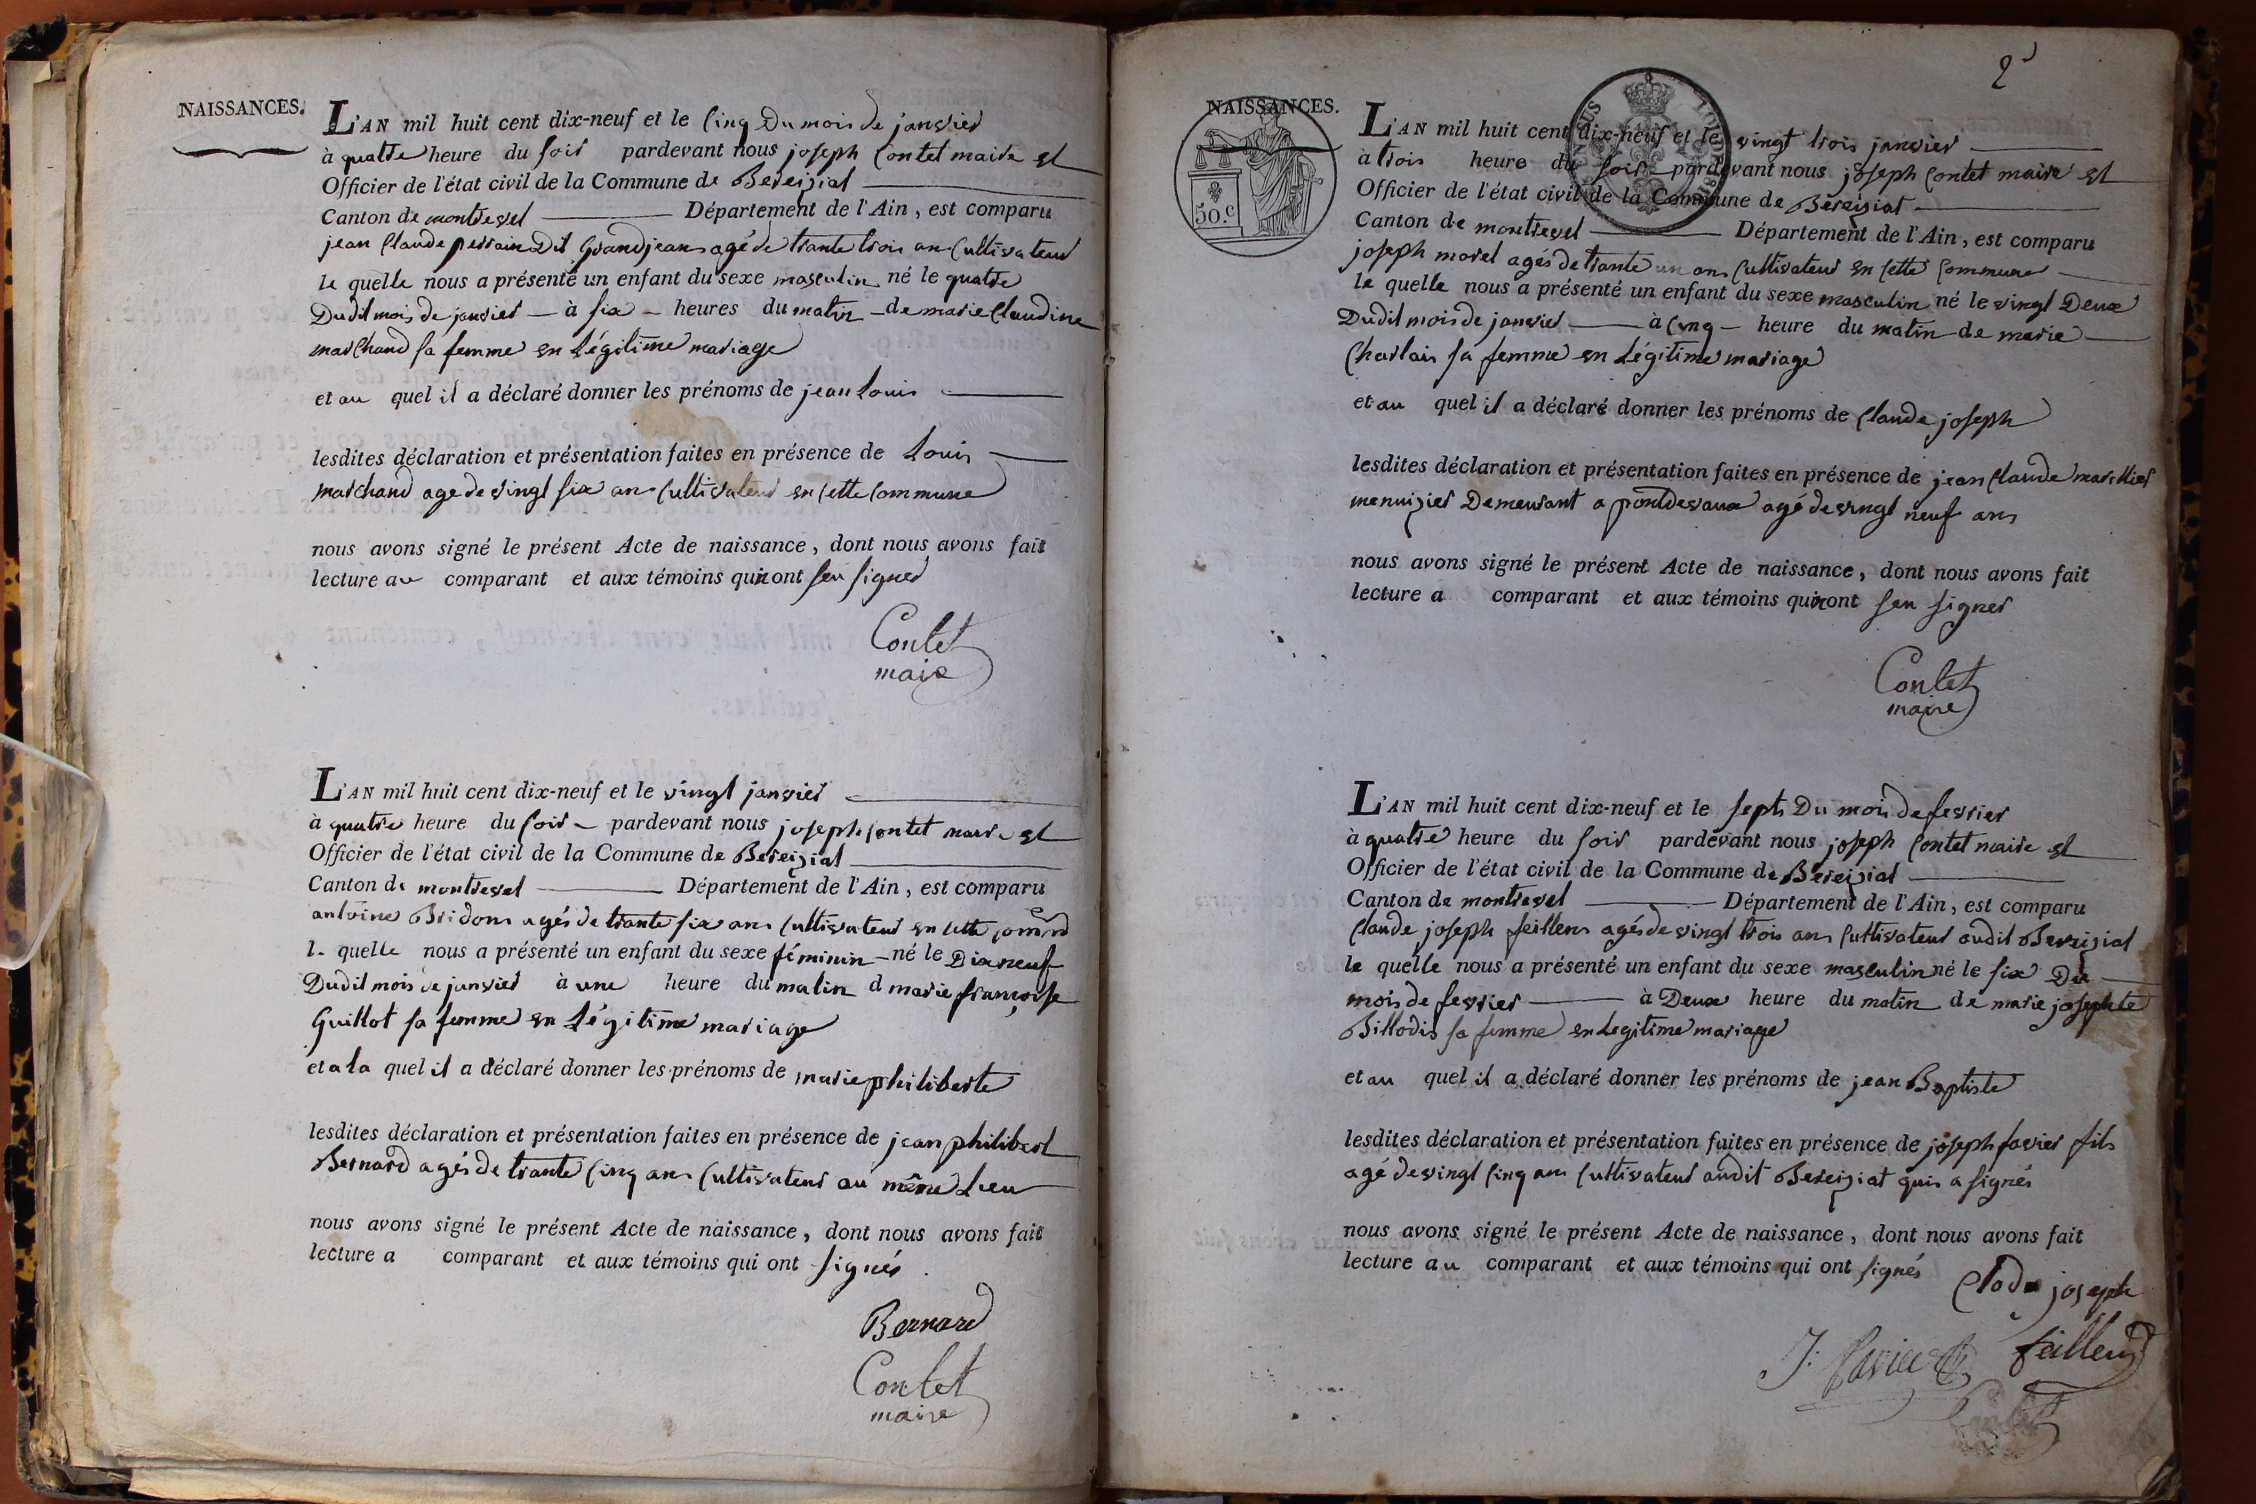 NAISSANCES.
L'AN mil huit cent dix-neuf et le Cinq Du mois de janvier
à quatre heure du soir pardevant nous joseph Contet maire et
Officier de l'état civil de la Commune de Bereiziat
Canton de montrevel Département de l'Ain, est comparu
jean Claude perrain Dit Grandjean agé de trante trois ans Cultivateur
le quelle nous a présenté un enfant du sexe masculin né le quatre
Dudit mois de janvier à six heures du matin de marie Claudine
marchand sa femme en Légitime mariage
et au quel il a déclaré donner les prénoms de jean Louis
lesdites déclaration et présentation faites en présence de Louis
marchand age de vingt six ans Cultivateur en cette Commune
nous avons signé le présent Acte de naissance, dont nous avons fait
lecture au comparant et aux témoins qui n'ont seu signer
Contet
maire
L'AN mil huit cent dix-neuf et le vingt janvier
à quatre heure du soir pardevant nous joseph Contet maire et
Officier de l'état civil de la Commune de Bereiziat
Canton de montrevel Département de l'Ain, est comparu
antoine Bridon agés de trante six ans Cultivateur en cette
le quelle nous a présenté un enfant du sexe féminin né le Dixneuf
Dudit mois de janvier à une heure du matin d marie françoise
Guillot sa femme en Légitime mariage
et a la quel il a déclaré donner les prénoms de marie philiberte
lesdites déclaration et présentation faites en présence de jean philibert
Bernard agés de trante Cinq ans Cultivateur au même Lieu
nous avons signé le présent Acte de naissance, dont nous avons fait
lecture a comparant et aux témoins qui ont signés
Bernard
Contet
maire
2
NAISSANCES.
50.c
L'AN mil huit cent dix-neuf et le vingt trois janvier
à trois heure du soir pardevant nous joseph Contet maire et
Officier de l'état civil de la Commune de Bereiziat
Canton de montrevel Département de l'Ain, est comparu
joseph morel agés de trante un ans Cultivateur en cette Commune
le quelle nous a présenté un enfant du sexe masculin né le vingt Deux
Dudit mois de janvier à Cinq heure du matin de marie
Charlais sa femme en Légitime mariage
et au quel il a déclaré donner les prénoms de Claude joseph
lesdites déclaration et présentation faites en présence de jean Claude
menuizier Demeurant a pontdevaux agé de vingt neuf ans
nous avons signé le présent Acte de naissance, dont nous avons fait
lecture a comparant et aux témoins qui n'ont seu signer
Contet
maire
L'AN mil huit cent dix-neuf et le sept Du mois de fevrier
à quatre heure du soir pardevant nous joseph Contet maire et
Officier de l'état civil de la Commune de Bereiziat
Canton de montrevel Département de l'Ain, est comparu
Claude joseph feillens agés de vingt trois ans Cultivateur audit Bereiziat
le quelle nous a présenté un enfant du sexe masculin né le six Du
mois de fevrier à Deux heure du matin de marie josephte
Billodis sa femme en Legitime mariage
et au quel il a déclaré donner les prénoms de jean Baptiste
lesdites déclaration et présentation faites en présence de joseph favier fils
agé de vingt Cinq ans Cultivateur audit Bereiziat quis a signés
nous avons signé le présent Acte de naissance, dont nous avons fait
lecture au comparant et aux témoins qui ont signés
Clode joseph
feillens
J. favier
Contet